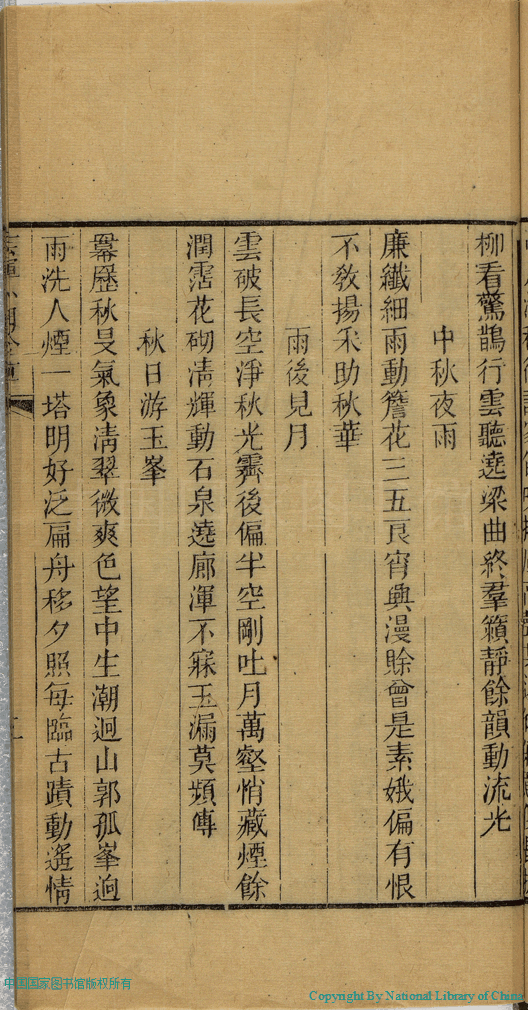 柳看驚鵲行雲聽遶梁曲終羣籟靜餘韻動流光
中秋夜雨
廉纖細雨動簷花三五良宵興漫賒曾是素娥偏有恨
不敎揚釆助秋華
雨後見月
雲破長空淨秋光霽後偏半空剛吐月萬壑悄藏煙餘
潤霑花砌淸輝動石泉遶廊渾不寐玉漏莫頻傳
秋日游玉峯
羃歷秋旻氣象淸翠微爽色望中生潮迴山郭孤峯迥
雨洗人煙一塔明好泛扁舟移夕照每臨古蹟動遙情
中国国家图书馆版权所有
Copyright By National Library of China